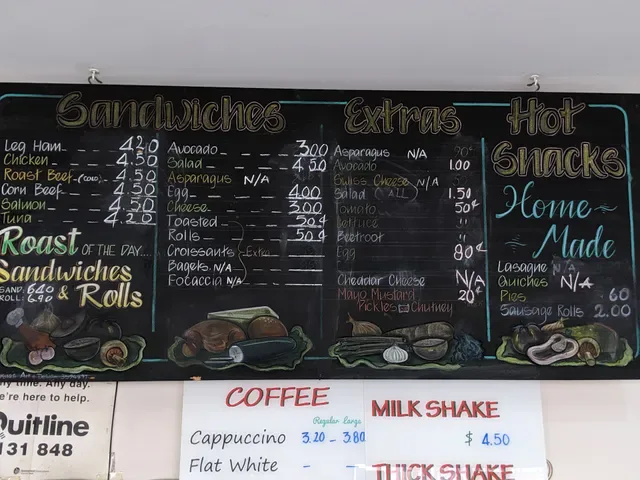 Sandwiches
Leg Ham 4.20
Chicken 4.50
Roast Beef (COLD) 4.50
Corn Beef 4.50
Salmon 4.50
Tuna 4.20
Roast OF THE DAY....
Sandwiches & Rolls
SAND: 6.40
ROLL: 6.90
Avocado 3.00
Salad 4.50
Asparagus N/A
Egg 4.00
Cheese 3.00
Toasted 50¢
Rolls 50¢
Croissants Extra
Bagels N/A
Focaccia N/A
Extras
Asparagus N/A
Avocado 1.00
Swiss Cheese N/A
Salad (ALL) 1.50
Tomato 50¢
Lettuce "
Beetroot "
Egg 80¢
Cheddar Cheese N/A
Mayo Mustard 20¢
Pickles Chutney
Hot Snacks
Home Made
Lasagne N/A
Quiches N/A
Pies .60
Sausage Rolls 2.00
ny time. Any day.
e're here to help.
Quitline
131 848
COFFEE
Regular Large
Cappuccino 3.20 - 3.80
Flat White - -
MILK SHAKE
$ 4.50
THICK SHAKE